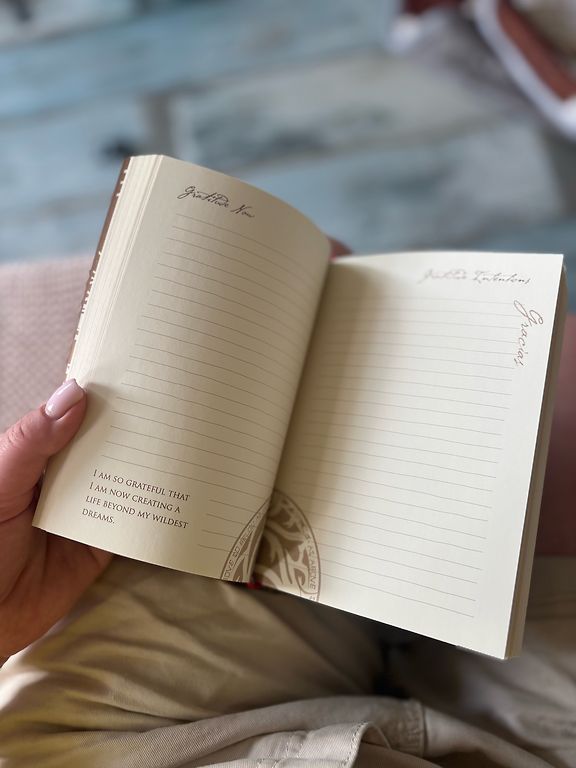 Gratitude Now
I AM SO GRATEFUL THAT
I AM NOW CREATING A
LIFE BEYOND MY WILDEST
DREAMS.
Gratitude Intentions
Gracias